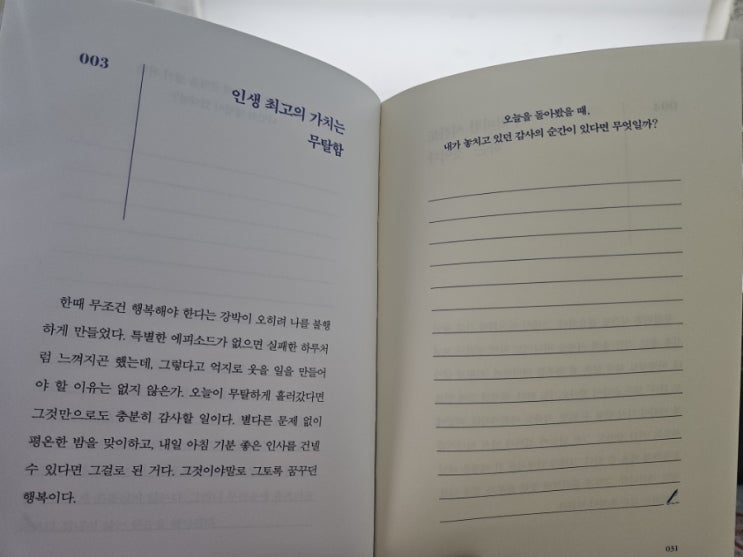 003
인생 최고의 가치는
무탈함
한때 무조건 행복해야 한다는 강박이 오히려 나를 불행
하게 만들었다. 특별한 에피소드가 없으면 실패한 하루처
럼 느껴지곤 했는데, 그렇다고 억지로 웃을 일을 만들어
야 할 이유는 없지 않은가. 오늘이 무탈하게 흘러갔다면
그것만으로도 충분히 감사할 일이다. 별다른 문제 없이
평온한 밤을 맞이하고, 내일 아침 기분 좋은 인사를 건넬
수 있다면 그걸로 된 거다. 그것이야말로 그토록 꿈꾸던
행복이다.
오늘을 돌아봤을 때,
내가 놓치고 있던 감사의 순간이 있다면 무엇일까?
031